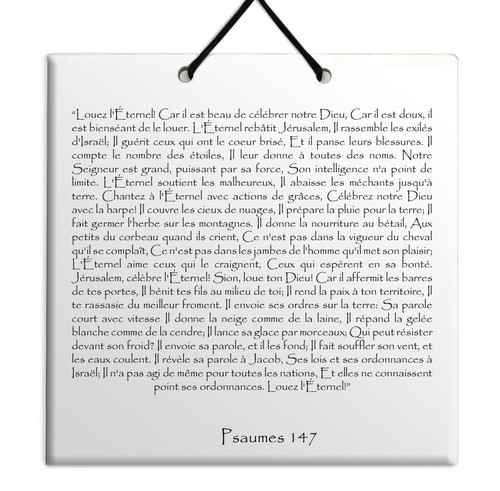 “Louez l'Éternel! Car il est beau de célébrer notre Dieu, Car il est doux, il
est bienséant de le louer. L'Éternel rebâtit Jérusalem, Il rassemble les exilés
d'Israël; Il guérit ceux qui ont le coeur brisé, Et il panse leurs blessures. Il
compte le nombre des étoiles, Il leur donne à toutes des noms. Notre
Seigneur est grand, puissant par sa force, Son intelligence n'a point de
limite. L'Éternel soutient les malheureux, Il abaisse les méchants jusqu'à
terre. Chantez à l'Éternel avec actions de grâces, Célébrez notre Dieu
avec la harpe! Il couvre les cieux de nuages, Il prépare la pluie pour la terre; Il
fait germer l'herbe sur les montagnes. Il donne la nourriture au bétail, Aux
petits du corbeau quand ils crient, Ce n'est pas dans la vigueur du cheval
qu'il se complaît, Ce n'est pas dans les jambes de l'homme qu'il met son plaisir;
L'Éternel aime ceux qui le craignent, Ceux qui espèrent en sa bonté.
Jérusalem, célèbre l'Éternel! Sion, loue ton Dieu! Car il affermit les barres
de tes portes, Il bénit tes fils au milieu de toi; Il rend la paix à ton territoire, Il
te rassasie du meilleur froment. Il envoie ses ordres sur la terre: Sa parole
court avec vitesse Il donne la neige comme de la laine, Il répand la gelée
blanche comme de la cendre; Il lance sa glace par morceaux; Qui peut résister
devant son froid? Il envoie sa parole, et il les fond; Il fait souffler son vent, et
les eaux coulent. Il révèle sa parole à Jacob, Ses lois et ses ordonnances à
Israël; Il n'a pas agi de même pour toutes les nations, Et elles ne connaissent
point ses ordonnances. Louez l'Éternel!”
Psaumes 147